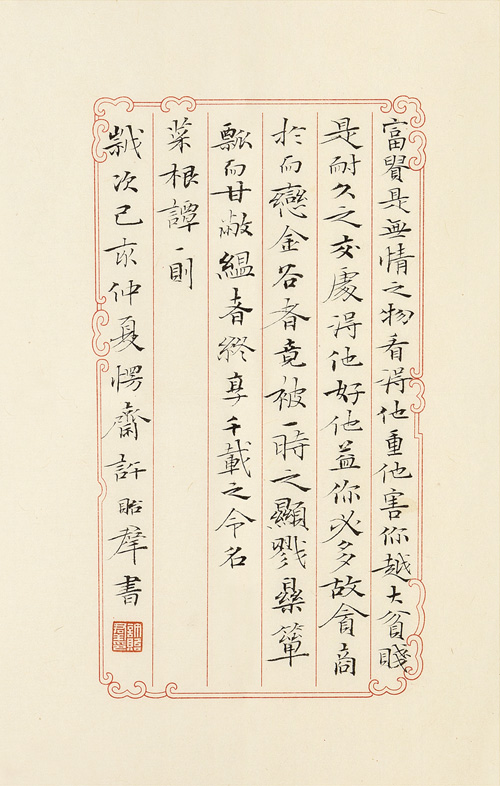 富貴是無情之物看得他重他害你越大貧賤
是耐久之交處得他好他益你必多故貪商
於而戀金谷者竟被一時之顯戮樂簞
瓢而甘敝縕者終享千載之令名
菜根譚一則
歲次己亥仲夏愕齋許羣書